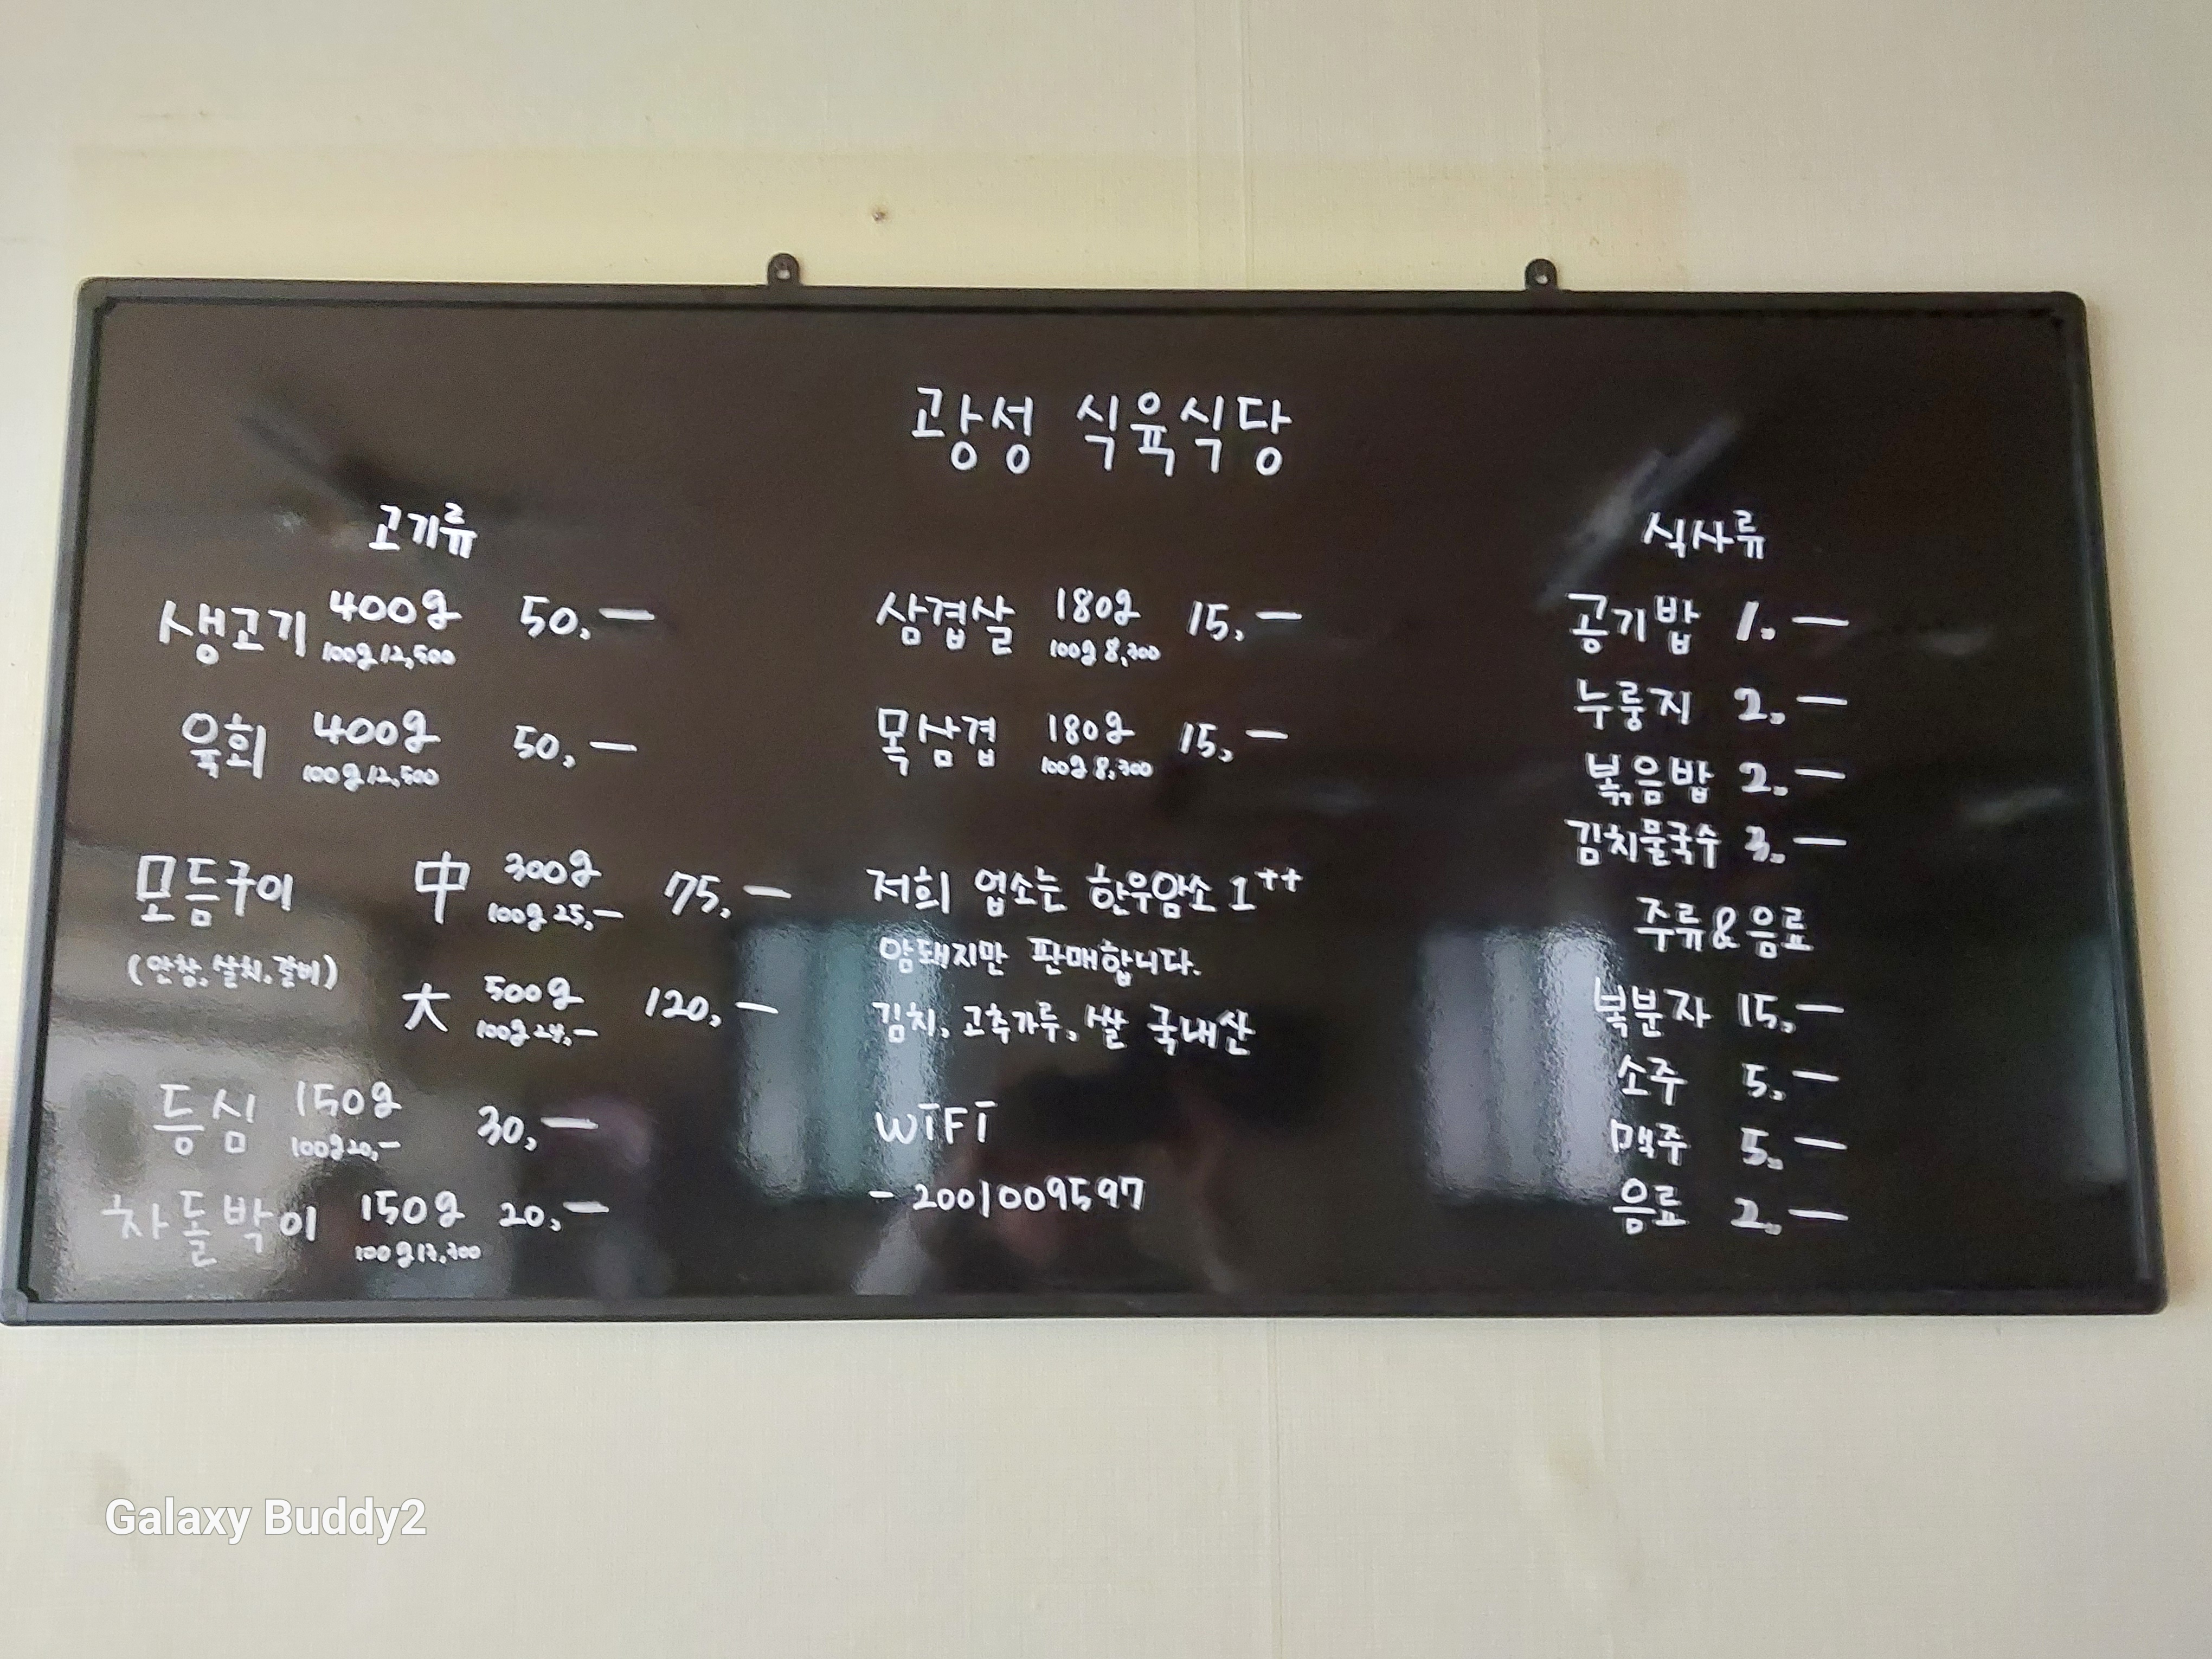 광성 식육식당
고기류
생고기 400g 50,—
100g 12,500
육회 400g 50,—
100g 12,500
모듬구이 中 300g 75,—
100g 25,—
(안창,살치,갈비)
大 500g 120,—
100g 24,—
등심 150g 30,—
100g 20,—
차돌박이 150g 20,—
100g 13,300
삼겹살 180g 15,—
100g 8,300
목삼겹 180g 15,—
100g 8,300
저희 업소는 한우암소 1++
암돼지만 판매합니다.
김치, 고추가루, 쌀 국내산
WIFI
- 2001009597
식사류
공기밥 1,—
누룽지 2,—
볶음밥 2,—
김치물국수 3,—
주류&음료
복분자 15,—
소주 5,—
맥주 5,—
음료 2,—
Galaxy Buddy2